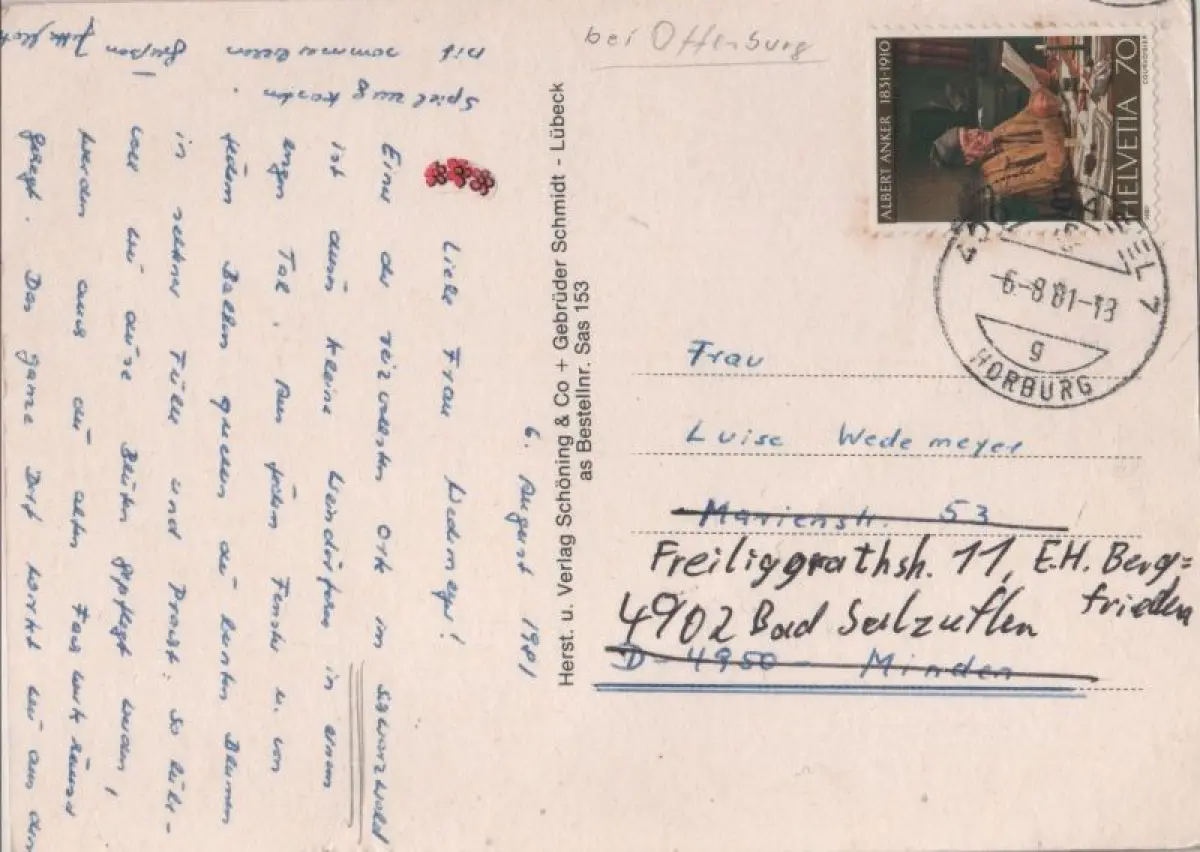 bei Offenburg
ALBERT ANKER 1831-1910
HELVETIA 70
COURVOISIER
SEL 7
-6-8 81-13
9
HORBURG
6. August 1981
Liebe Frau Wedemeyer!
Einer der reizvollsten Orte im Schwarzwald
ist dieses kleine Weindörfchen in einem
engen Tal. Aus jedem Fenster u. von
jedem Balken quellen die bunten Blumen
in echter Fülle und Pracht: so
wie diese Blüten gepflegt werden,
werden auch die alten Fachwerkhäuser
gepflegt. Das ganze Dorf wirkt wie aus dem
Spielzeugkasten.
Mit sommerlichen
Grüßen!
Herst. u. Verlag Schöning & Co + Gebrüder Schmidt - Lübeck
as Bestellnr. Sas 153
Frau
Luise Wedemeyer
Marienstr. 53
Freiliggrathstr. 11, E.H. Berg=
frieden
4902 Bad Salzuflen
D-4950 - Minden